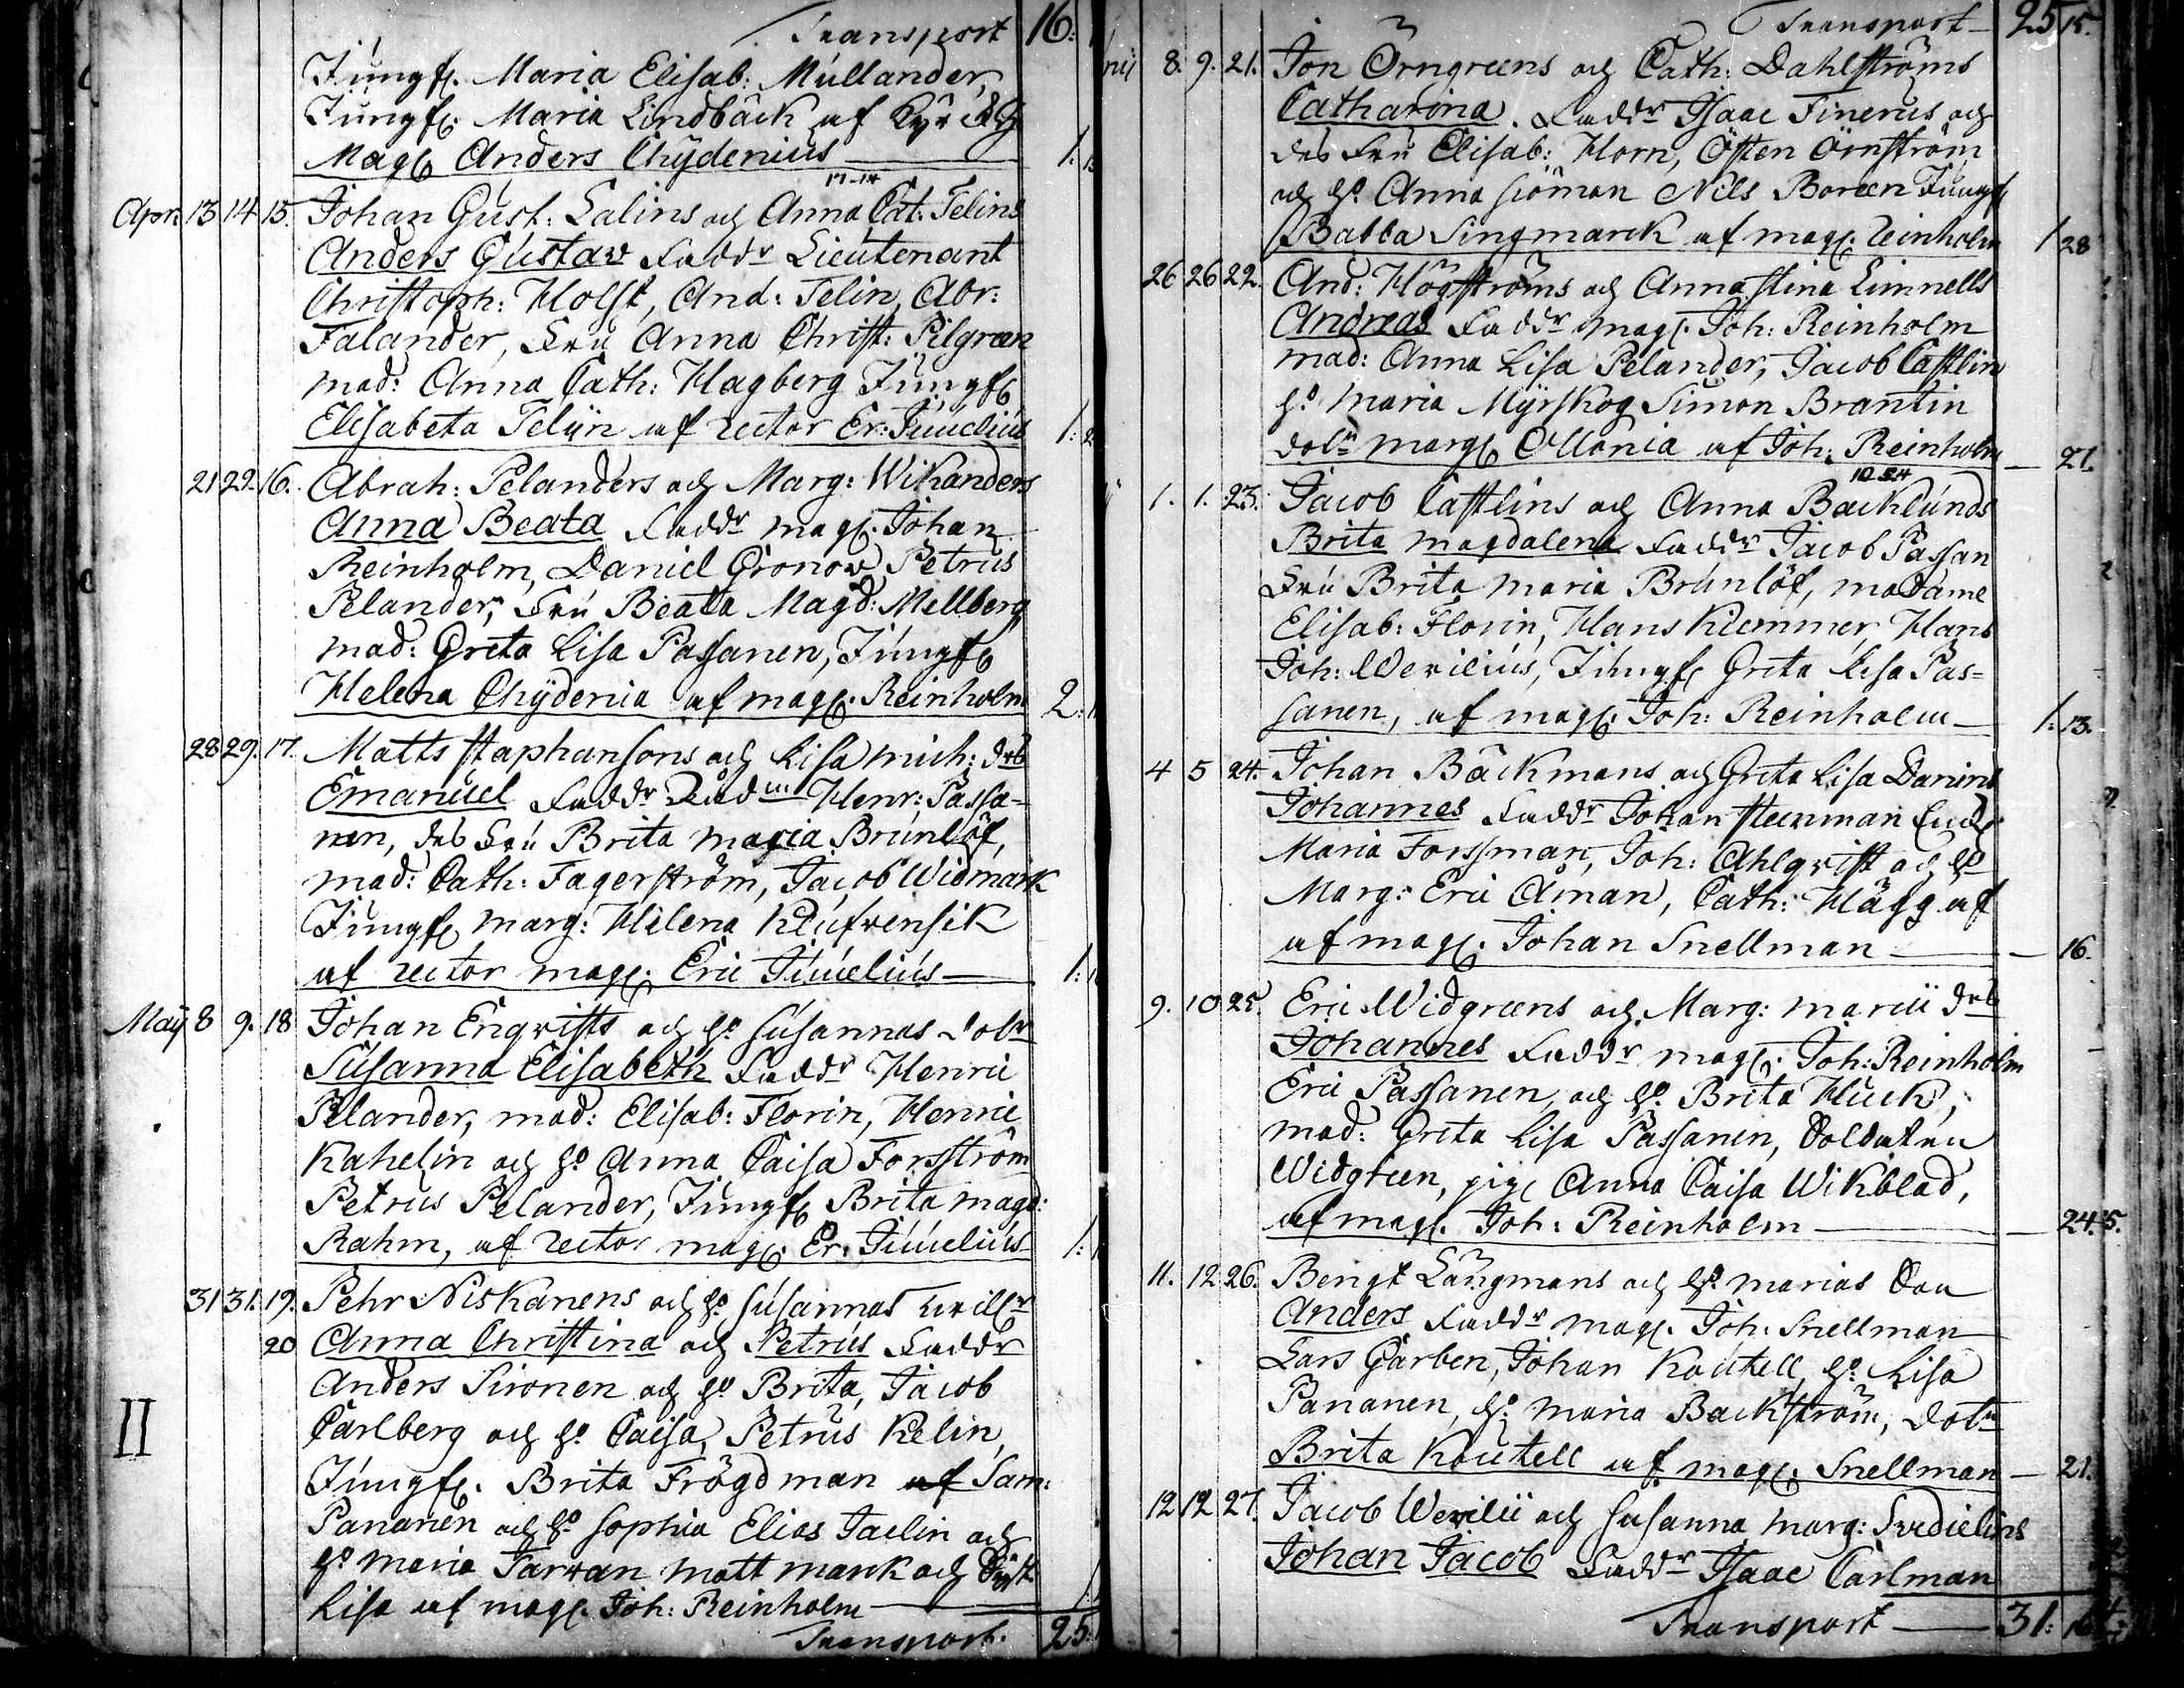 Transport 16:
Jungf. Maria Elisab: Mullander,
Jungf. Maria Lindbäck af Kyr
Mag Anders Chydenius 1:
17-14
Apr. 13 14 15. Johan Gust: Salins och Anna Cat: Telins
Anders Gustav Faddr Lieutenant
Christoph: Holst, And: Telin, Abr:
Falander, Fru Anna Christ: Pilgreen
mad: Anna Cath: Hagberg Jungf
Elisabeta Telijn af rector Er: Juuelius 1:
21 22. 16. Abrah: Pelanders och Marg: Wikanders
Anna Beata Faddr mag. Johan
Reinholm, Daniel Gronow Petrus
Pelander, Fru Beata Magd: Mellberg
mad: Greta Lisa Passanen, Jungf
Helena Chydenia af mag. Reinholm 2:
28 29. 17. Matts Staphansons och Lisa mich: drs
Emanuel Faddr Rådm Henr: Passa-
nen, des Fru Brita maria Brunlöf,
mad: Cath: Fagerström, Jacob Widmark
Jungf marg: Helena
af rector mag. Eric Juuelius 1:
Maÿ 8 9. 18 Johan Enqvists och H. Susannas dotr
Susanna Elisabeth Faddr Henric
Pelander, mad: Elisab: Florin, Henric
Kahelin och H. Anna Caisa Forsström
Petrus Pelander, Jungf Brita magd:
Rahm, af rector mag. Er: Juuelius 1:
31 31. 19. Pehr Niskanens och H. Susannas twillr
20 Anna Christina och Petrus Faddr
Anders Sironen och H. Brita, Jacob
Carlberg och H. Caisa, Petrus Kelin,
Jungf. Brita Frögdman af Sam:
II
Pananen och H. Sophia Elias Taelin och
H. Maria Tarwan matt mark och
Lisa af mag. Joh: Reinholm
Transport. 25:
Transport 25 15.
8. 9. 21. Jon Örngreens och Cath: Dahlströms
Catharina. Faddr Isaac Finerus och
des Fru Elisab: Horn, Östen Örnström
och H. Anna Siöman Nils Boreen Jungf
Babba Singmarck af mag. Reinholm 1 28
26 26 22. And: Högströms och Anna Stina Linnells
Andreas Faddr mag. Joh: Reinholm
mad: Anna Lisa Pelander, Jacob Castlin
H. Maria Myrskog Simon Brantin
dotr marg Ollonia af Joh: Reinholm 27.
1. 1. 23. Jacob Castlins och Anna Backlunds
Brita magdalena Faddr Jacob Passan
Fru Brita maria Brunlöf, madame
Elisab: Florin, Hans Klemmer, Hans
Joh: Wevilius, Jungf Greta Lisa Pas-
sanen, af mag. Joh: Reinholm 1: 13.
4 5 24. Johan Bäckmans och Greta Lisa Danins
Johannes Faddr Johan Steenman
Maria Forssman, Joh: Ahlqvist och H.
Marg: Eric Åman, Cath: Hägg af
af mag. Johan Snellman 16.
9. 10 25. Eric Widgreens och Marg: marii drs
Johannes Faddr mag. Joh: Reinholm
Eric Passanen, och H. Brita Huck,
mad: Greta Lisa Passanen, Soldaten
Widgreen, pig Anna Caisa Wikblad,
af mag. Joh: Reinholm 24. 5.
11. 12 26. Bengt Långmans och H. marias Son
Anders Faddr mag. Joh: Snellman
Lars Garben, Johan Koutell, H. Lisa
Pananen, H. maria Backström, Dotr
Brita Koutell af mag. Snellman 21.
12 12 27. Jacob Wevilii och Susanna marg:
Johan Jacob Faddr Isaac Carlman
Transport 31: